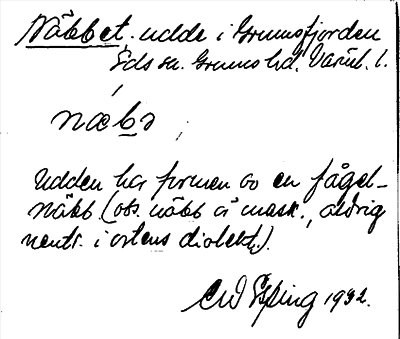 Näbbet, udde i Grumsfjorden
Eds sn. Grums hd. Värml. l.
næbə
udden har formen av en fågel-
näbb. (obs. näbb är mask., aldrig
neutr. i ortens dialekt.).
1932.